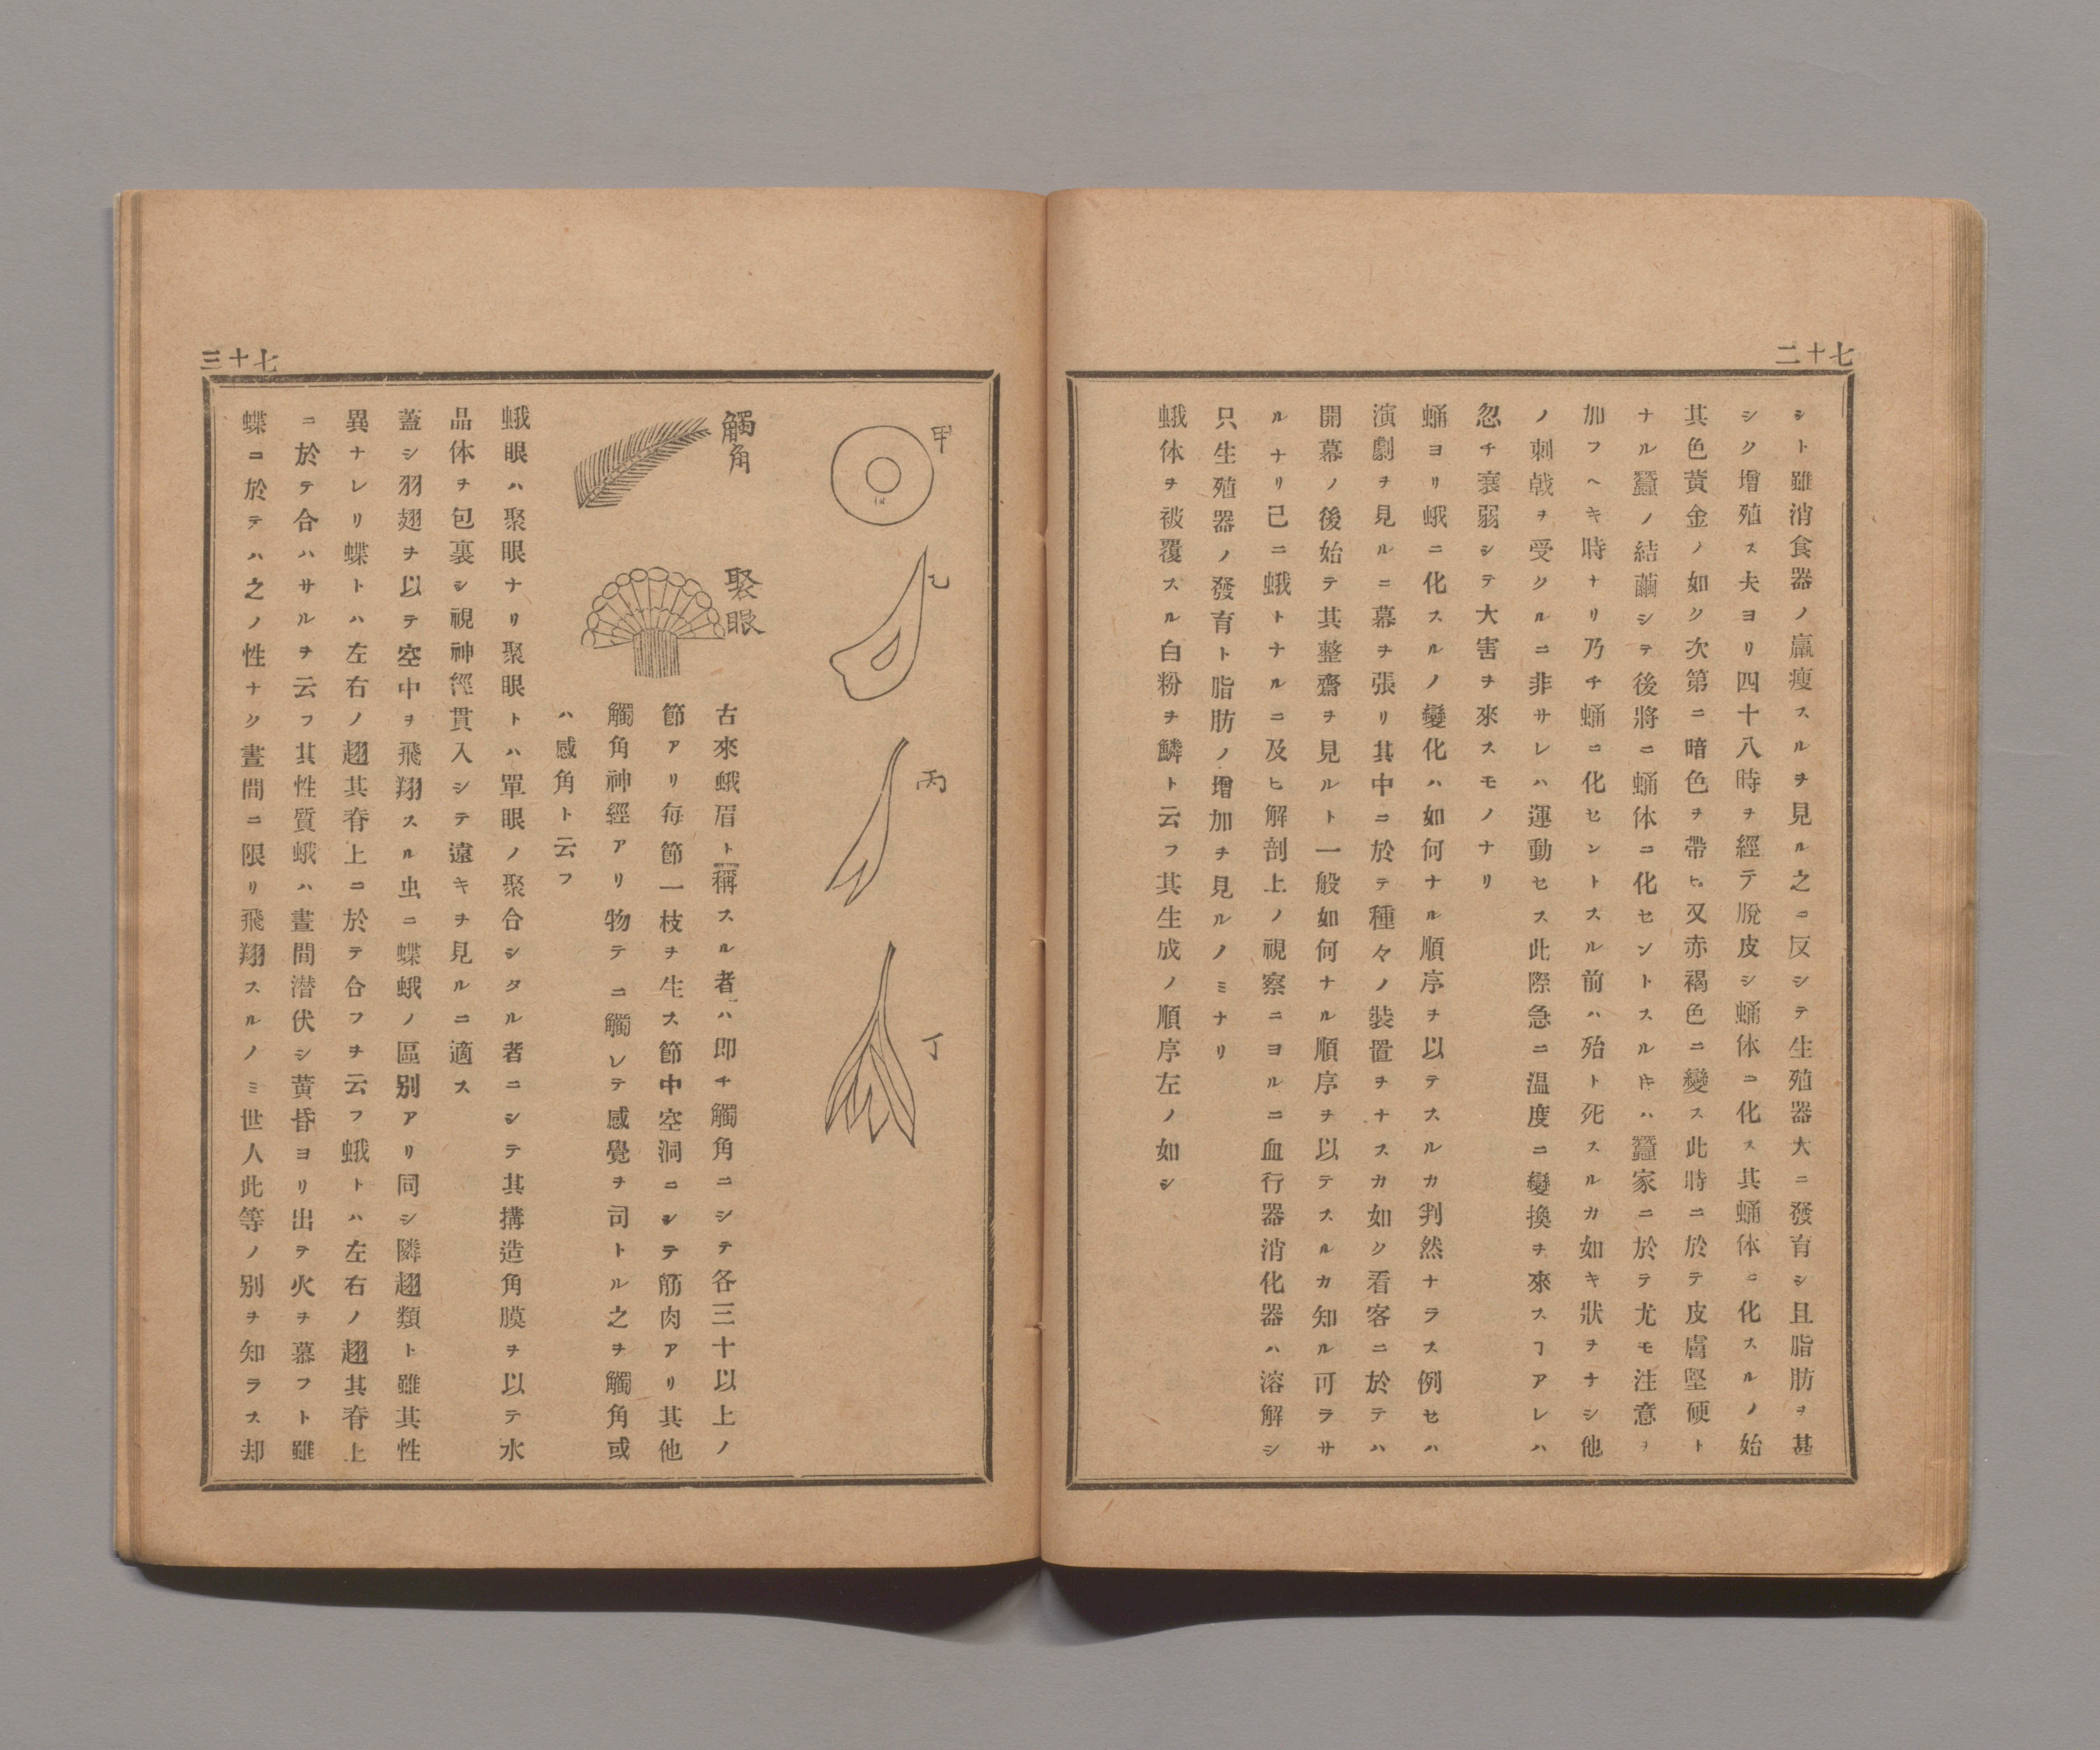 七十二
シト雖消食器ノ羸瘦スルヲ見ル之ニ反シテ生殖器大ニ發育シ且脂肪ヲ甚
シク增殖ス夫ヨリ四十八時ヲ經テ脫皮シ蛹体ニ化ス其蛹体ニ化スルノ始
其色黃金ノ如ク次第ニ暗色ヲ帶ヒ又赤褐色ニ變ス此時ニ於テ皮膚堅硬ト
ナル蠶ノ結繭シテ後將ニ蛹体ニ化セントスルキハ蠶家ニ於テ尤モ注意ヲ
加フヘキ時ナリ乃チ蛹ニ化セントスル前ハ殆ト死スルカ如キ狀ヲナシ他
ノ刺戟ヲ受クルニ非サレハ運動セス此際急ニ温度ニ變換ヲ來スヿアレハ
忽チ衰弱シテ大害ヲ來スモノナリ
蛹ヨリ蛾ニ化スルノ變化ハ如何ナル順序ヲ以テスルカ判然ナラス例セハ
演劇ヲ見ルニ幕ヲ張リ其中ニ於テ種々ノ裝置ヲナスカ如ク看客ニ於テハ
開幕ノ後始テ其整齋ヲ見ルト一般如何ナル順序ヲ以テスルカ知ル可ラサ
ルナリ已ニ蛾トナルニ及ヒ解剖上ノ視察ニヨルニ血行器消化器ハ溶解シ
只生殖器ノ發育ト脂肪ノ增加ヲ見ルノミナリ
蛾体ヲ被覆スル白粉ヲ鱗ト云フ其生成ノ順序左ノ如シ
七十三
甲
乙
丙
丁
觸角
聚眼
古來蛾眉ト稱スル者ハ即チ觸角ニシテ各三十以上ノ
節アリ每節一枝ヲ生ス節中空洞ニシテ筋肉アリ其他
觸角神經アリ物テニ觸レテ感覺ヲ司トル之ヲ觸角或
ハ感角ト云フ
蛾眼ハ聚眼ナリ聚眼トハ單眼ノ聚合シタル者ニシテ其搆造角膜ヲ以テ水
晶体ヲ包裏シ視神經貫入シテ遠キヲ見ルニ適ス
蓋シ羽翅ヲ以テ空中ヲ飛翔スル虫ニ蝶蛾ノ區別アリ同シ隣翅類ト雖其性
異ナレリ蝶トハ左右ノ翅其脊上ニ於テ合フヲ云フ蛾トハ左右ノ翅其脊上
ニ於テ合ハサルヲ云フ其性質蛾ハ晝間潜伏シ黄昏ヨリ出テ火ヲ慕フト雖
蝶ニ於テハ之ノ性ナク晝間ニ限リ飛翔スルノミ世人此等ノ別ヲ知ラス却